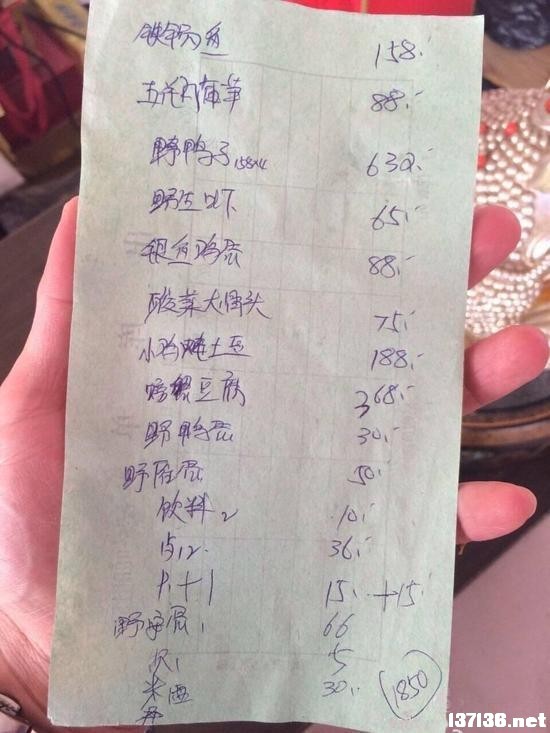 铁锅鱼 158.-
五花肉 88.-
野鸭子 158×4 632.-
野生 65.-
银鱼鸡蛋 88.-
酸菜大骨头 75.-
小鸡炖土豆 188.-
螃蟹豆腐 368.-
野鸭蛋 30.-
野 蛋 50.-
饮料2 10.-
12. 36.-
+1 15. +15.-
野 蛋1 66
1 5
米酒 30.- 1850
137136.net